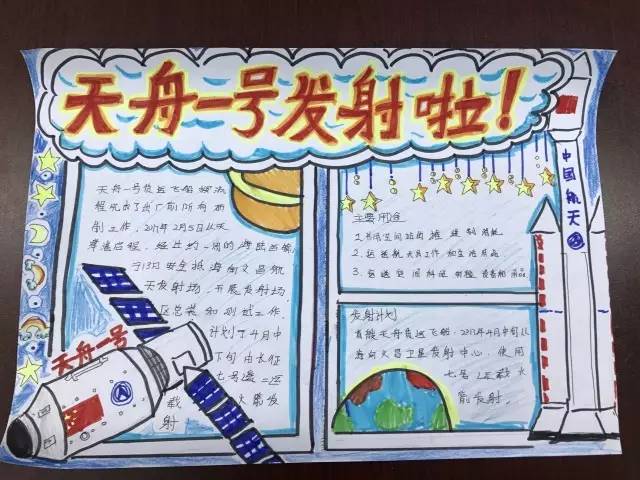 天舟一号发射啦!
天舟一号货运飞船顺利
完成了出厂前所有研
制工作,2017年2月5日从天
津港启程,经过约一周的海陆运输,
于13日安全抵海南文昌航
天发射场,开展发射场
区总装和测试工作.
计划于4月中
下旬由长征
七号遥二运
载火箭发
射
天舟一号
主要用途
1.补给空间站的推进剂消耗
2.运送航天员工作和生活用品
3.运送空间科研设备和用品
发射计划
首艘天舟货运飞船,2017年4月中旬从
海南文昌卫星发射中心,使用
七号运载火
箭发射.
中國航天